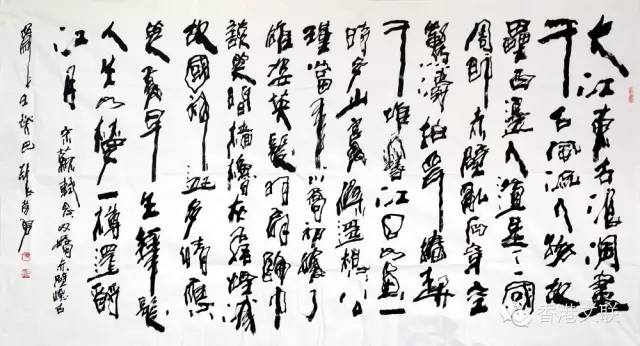 大江東去浪淘盡
千古風流人物故
壘西邊人道是三國
周郎赤壁亂石穿空
驚濤拍岸捲起
千堆雪江山如畫一
時多少豪傑遙想公
瑾當年小喬初嫁了
雄姿英發羽扇綸巾
談笑間檣櫓灰飛煙滅
故國神遊多情應
笑我早生華髮
人生如夢一樽還酹
江月
宋蘇軾念奴嬌赤壁懷古
癸巳
香港文联